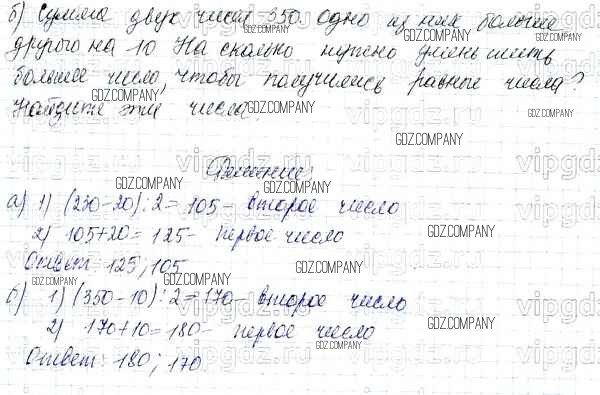 б) Сумма двух чисел 350. Одно из них больше
другого на 10 На сколько нужно уменьшить
большее число, чтобы получились равные числа?
Найдите эти числа
Решение:
а) 1) (230-20):2=105- второе число
2) 105+20=125- первое число
Ответ: 125; 105
б) 1) (350-10):2=170- второе число
2) 170+10=180- первое число
Ответ: 180; 170
GDZ.COMPANY
vipgdz.ru